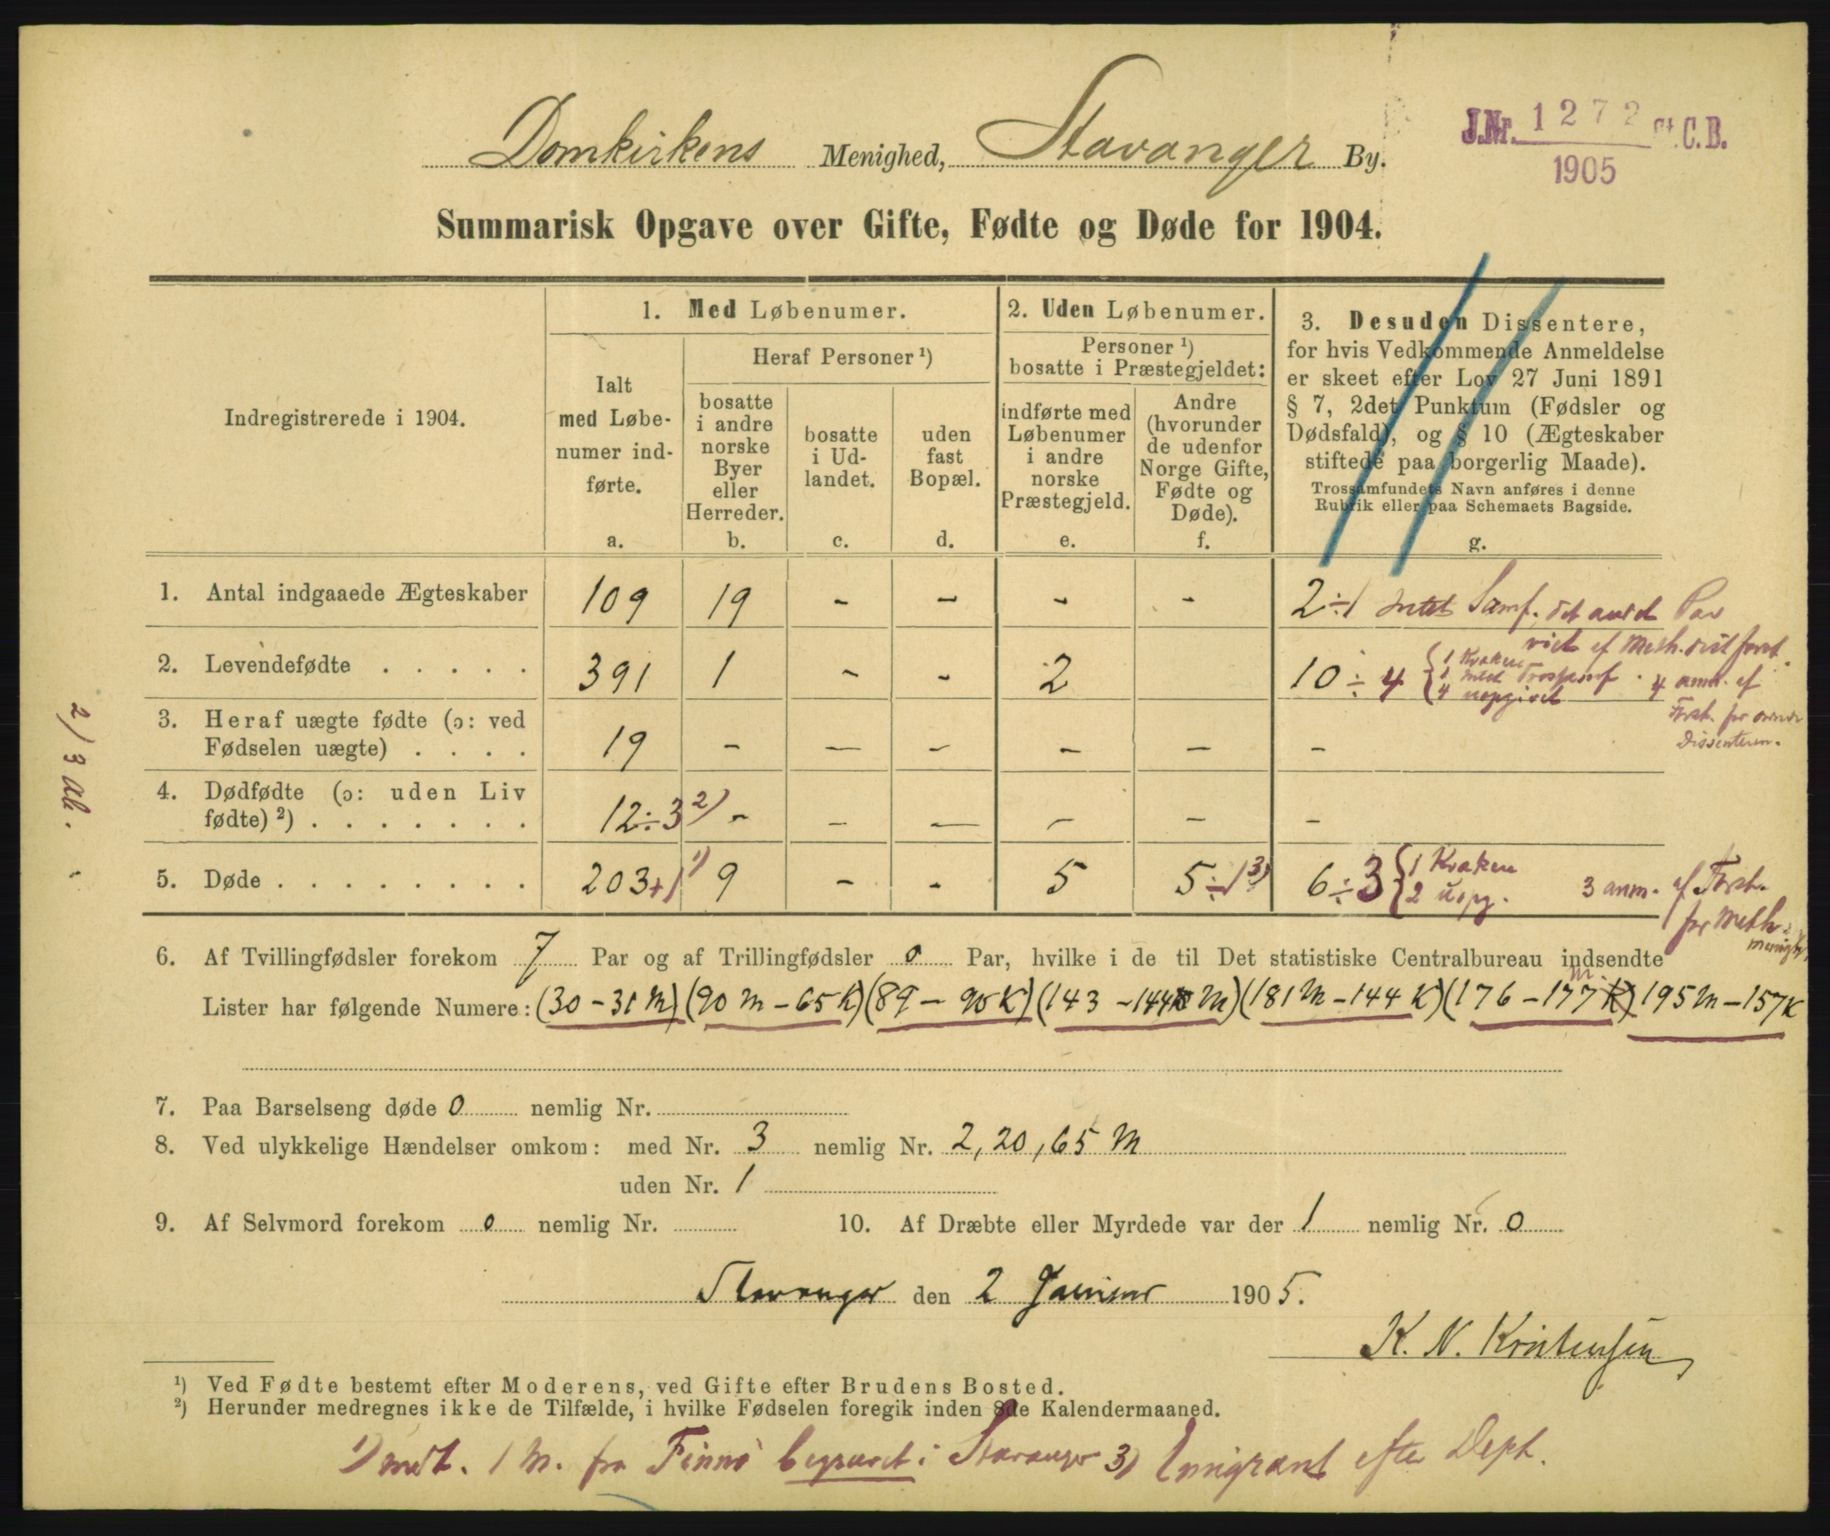 Domkirkens Menighed, Stavanger By.
J.Nr. 1272 St.C.B.
1905
Summarisk Opgave over Gifte, Fødte og Døde for 1904.
Indregistrerede i 1904.
1. Med Løbenumer.
Ialt
med Løbe-
numer ind-
førte.
a.
Heraf Personer ¹)
bosatte
i andre
norske
Byer
eller
Herreder.
b.
bosatte
i Ud-
landet.
c.
uden
fast
Bopæl.
d.
2. Uden Løbenumer.
Personer ¹)
bosatte i Præstegjeldet:
indførte med
Løbenumer
i andre
norske
Præstegjeld.
e.
Andre
(hvorunder
de udenfor
Norge Gifte,
Fødte og
Døde).
f.
3. Desuden Dissentere,
for hvis Vedkommende Anmeldelse
er skeet efter Lov 27 Juni 1891
§ 7, 2det Punktum (Fødsler og
Dødsfald), og § 10 (Ægteskaber
stiftede paa borgerlig Maade).
Trossamfundets Navn anføres i denne
Rubrik eller paa Schemaets Bagside.
g.
1. Antal indgaaede Ægteskaber 109 19 - - - - 2÷1 intet Samf. det andet Par
viet af Meth. forst.
2. Levendefødte . . . . . 391 1 - - 2 10 ÷ 4 { 1 Kvaken
1 intet Trossamf. 4 anm. af
4 uopgivet
Forst. for
Dissentern.
3. Heraf uægte fødte (ɔ: ved
Fødselen uægte) . . . . 19 - - - - - -
4. Dødfødte (ɔ: uden Liv
fødte) ²) . . . . . . . 12÷3 2) - - - - - -
5. Døde . . . . . . . . . 203+1 1) 9 - - 5 5÷1 3) 6÷3 { 1 Kvaken
2 uopg. 3 anm. af Forst.
for Meth.
2) 3 ab.
6. Af Tvillingfødsler forekom 7 Par og af Trillingfødsler 0 Par, hvilke i de til Det statistiske Centralbureau indsendte
Lister har følgende Numere: (30 - 31 M) (90 M - 65 K) (89 - 90 K) (143 - 144 M) (181 M - 144 K) (176 - 177 M) 195 M - 157 K
7. Paa Barselseng døde 0 nemlig Nr.
8. Ved ulykkelige Hændelser omkom: med Nr. 3 nemlig Nr. 2, 20, 65 M
uden Nr. 1
9. Af Selvmord forekom 0 nemlig Nr. 10. Af Dræbte eller Myrdede var der 1 nemlig Nr. 0
Stavanger den 2 Januar 1905.
K. N. Kristensen
¹) Ved Fødte bestemt efter Moderens, ved Gifte efter Brudens Bosted.
²) Herunder medregnes ikke de Tilfælde, i hvilke Fødselen foregik inden 8de Kalendermaaned.
1) indt. 1 M. fra Finnø begravet i Stavanger 3) Emigrant efter Dept.